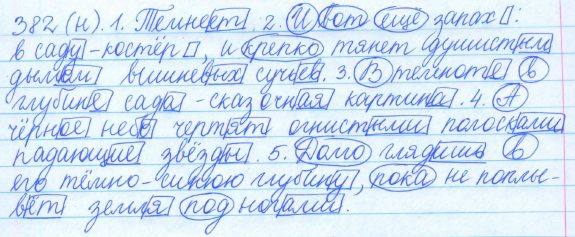 382 (н). 1. Темнеет. 2. И вот ещё запах:
в саду - костёр, и крепко тянет душистым
дымом вишневых сучьев. 3. В темноте в
глубине сада - сказочная картина. 4. А
чёрное небо чертят огнистыми полосками
падающие звёзды. 5. Долго глядишь в
его тёмно-синюю глубину, пока не поплы-
вёт земля под ногами.